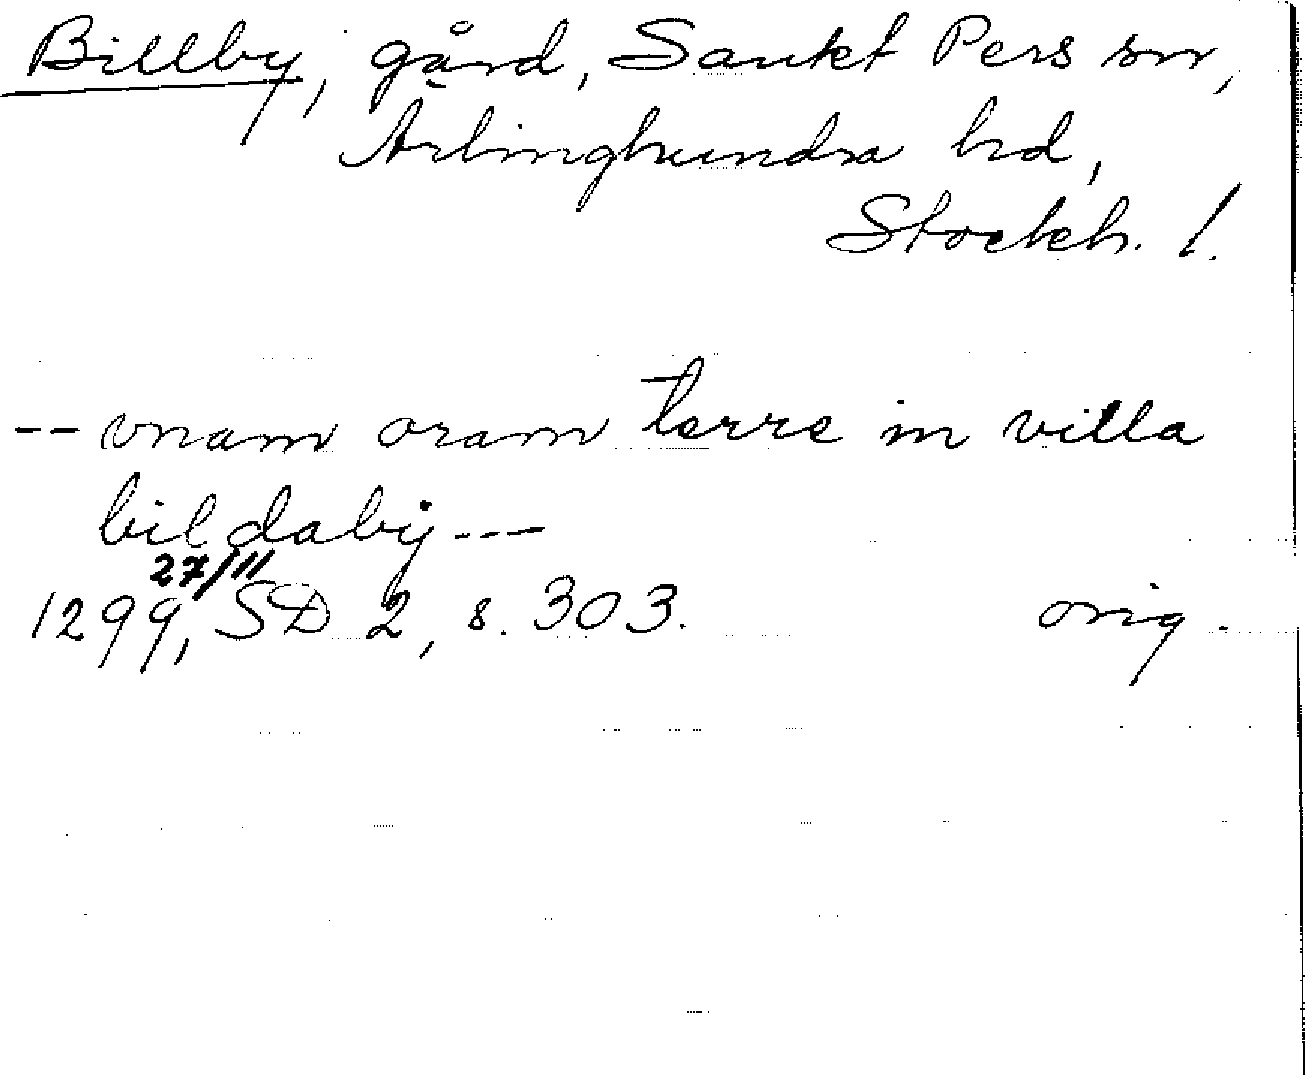 Billby, gård, Sankt Pers sn,
Ärlinghundra hd,
Stockh. l.
-- vnam oram terre in villa
bildaby ---
27/11
1299, SD 2, s. 303. orig.